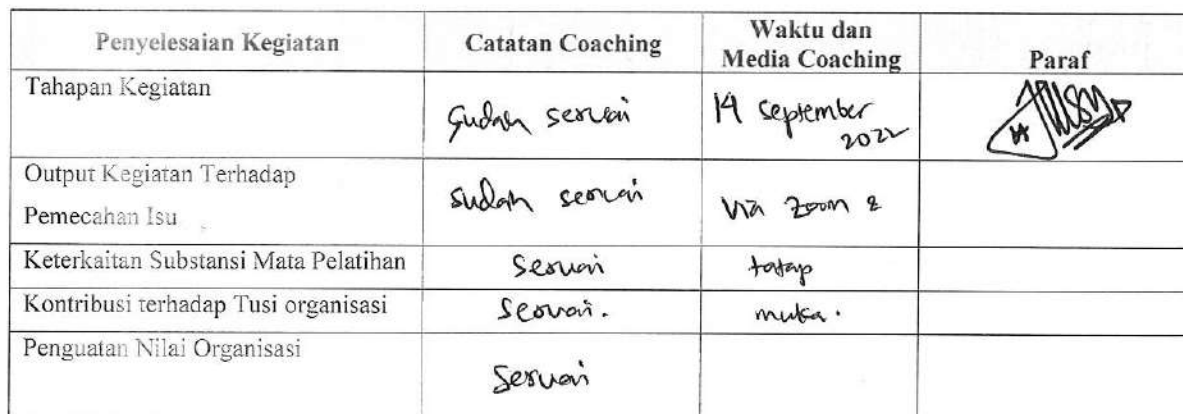 Penyelesaian Kegiatan Catatan Coaching Waktu dan Media Coaching Paraf
Tahapan Kegiatan Sudah sesuai 14 September 2022
Output Kegiatan Terhadap Pemecahan Isu sudah sesuai Via Zoom &
Keterkaitan Substansi Mata Pelatihan Sesuai tatap
Kontribusi terhadap Tusi organisasi Sesuai. muka.
Penguatan Nilai Organisasi Sesuai